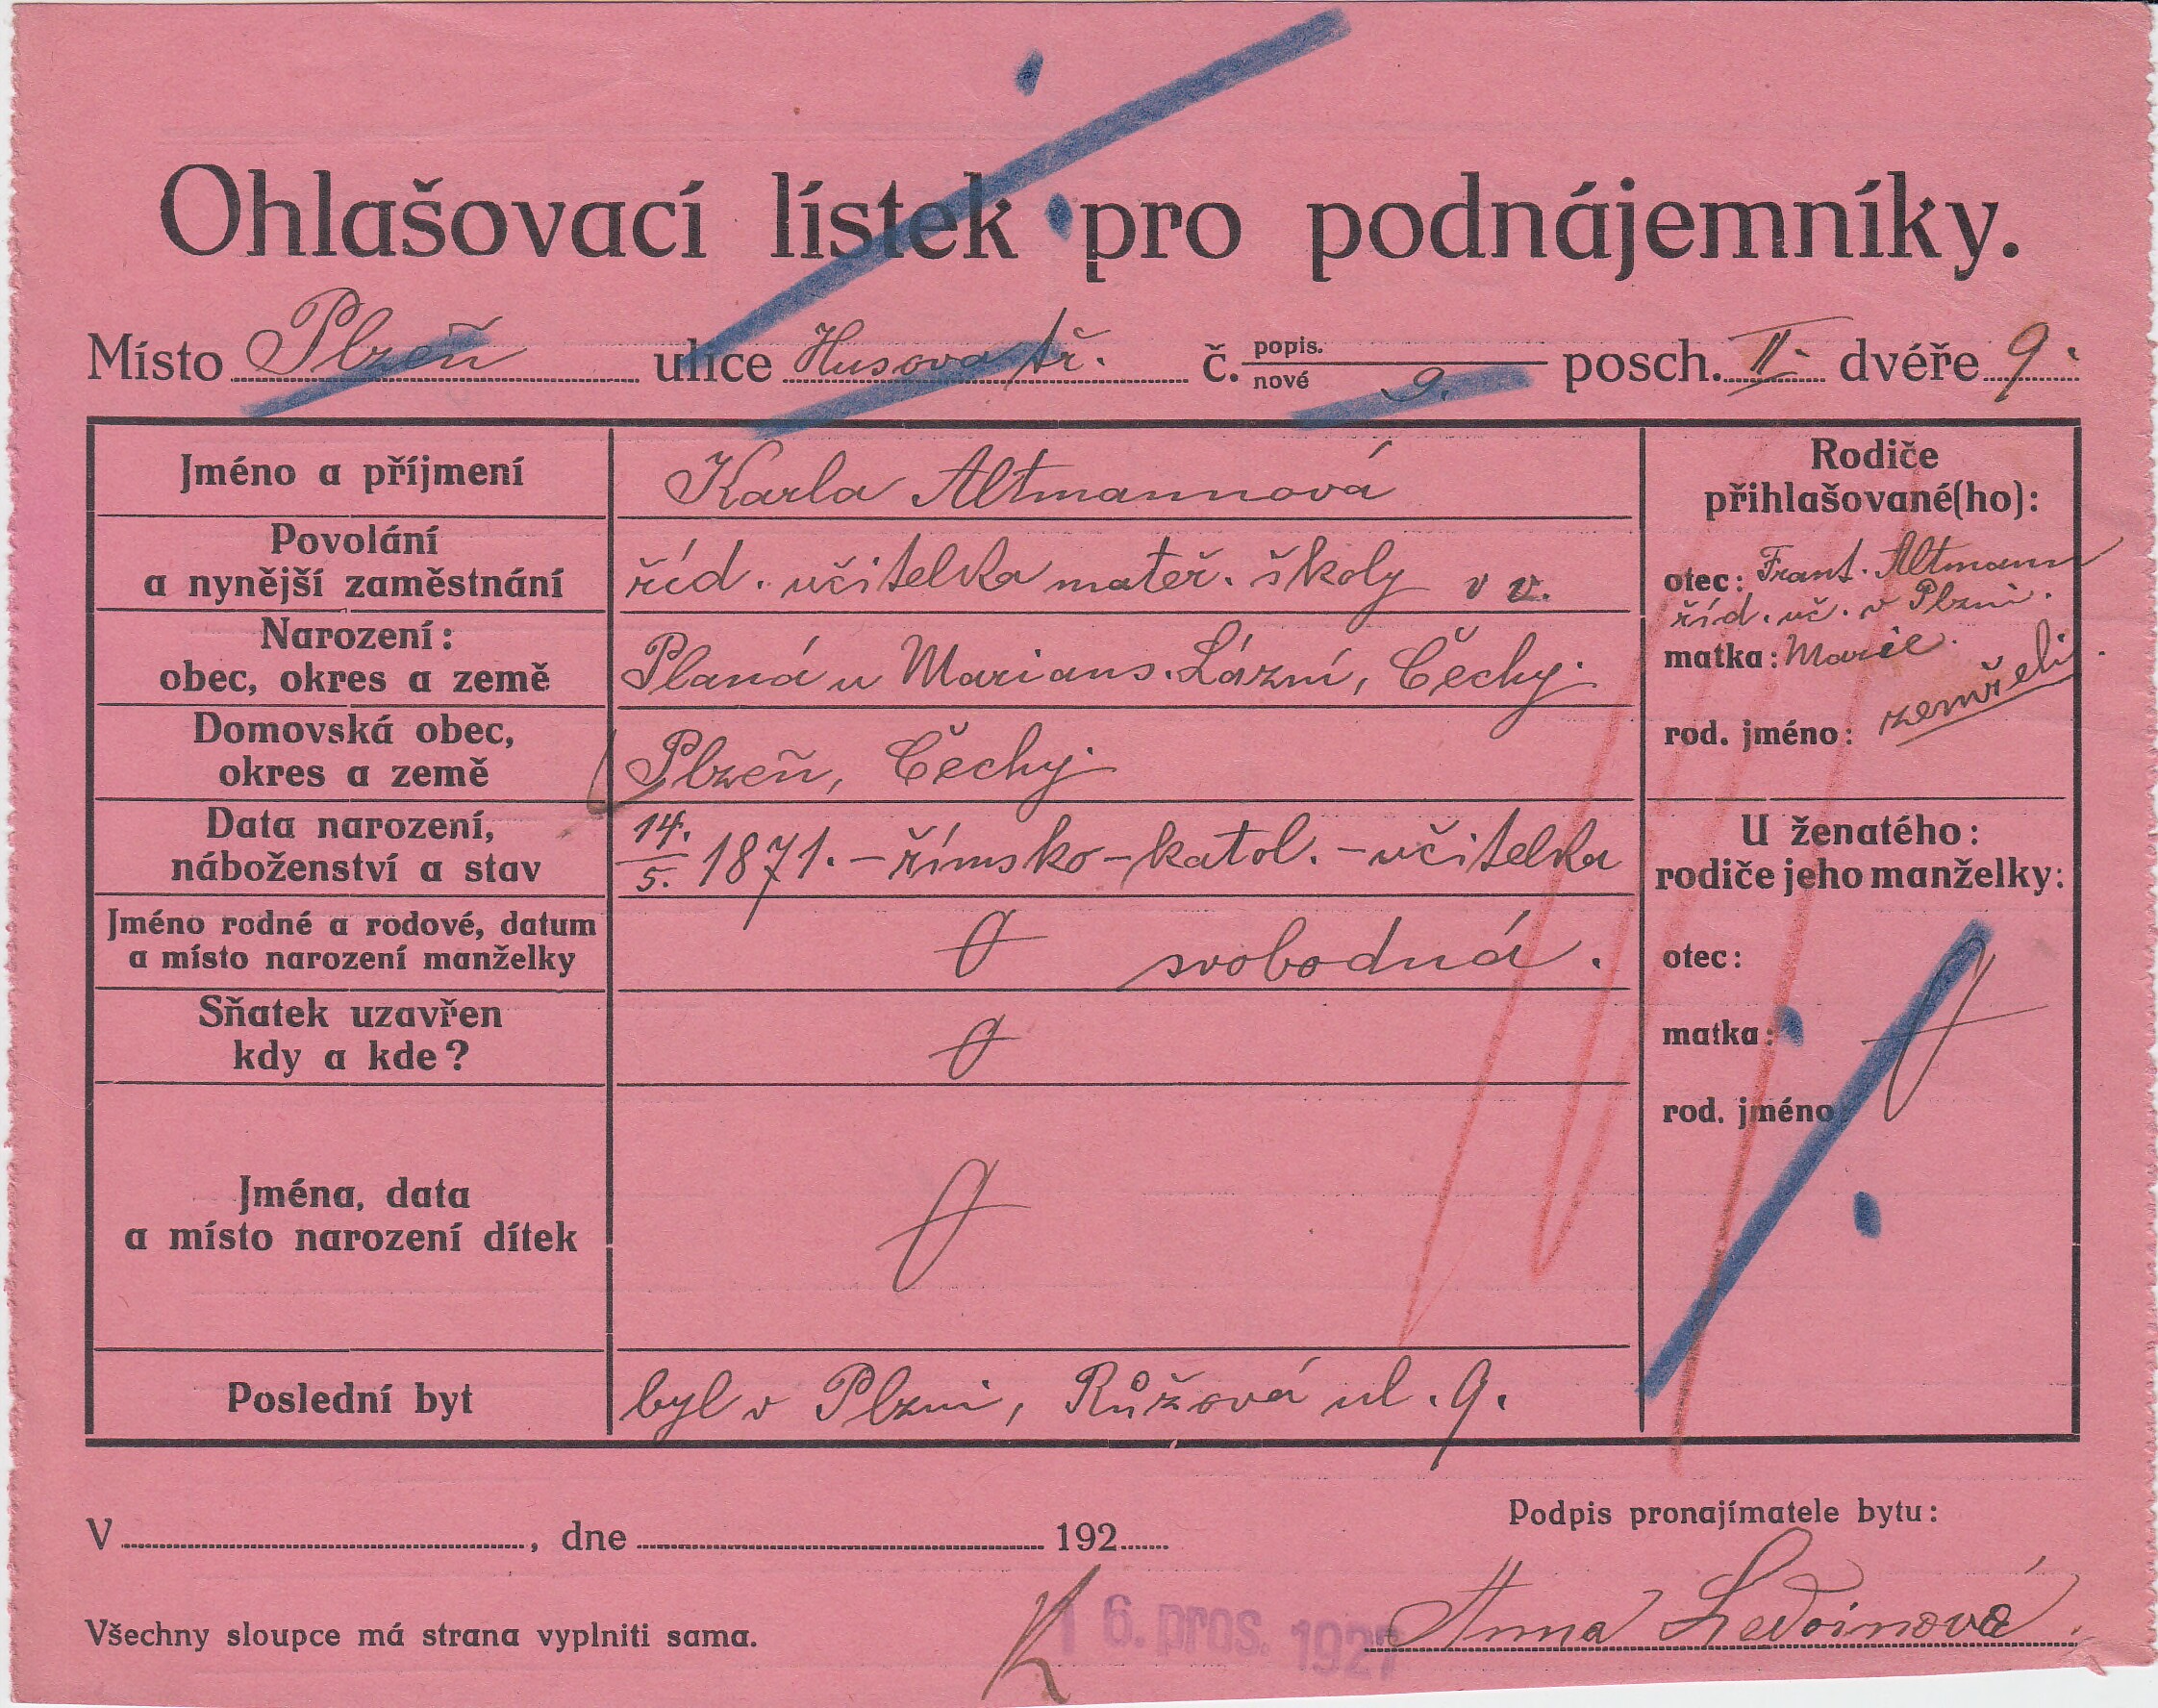 Ohlašovací lístek pro podnájemníky.
Místo Plzeň ulice Husova tř. č. popis. nové 9. posch. II. dvéře 9.
Jméno a příjmení Karla Altmannová
Povolání
a nynější zaměstnání říd. učitelka mateř. školy v v.
Narození:
obec, okres a země Planá u Marians. Lázní, Čechy.
Domovská obec,
okres a země Plzeň, Čechy
Data narození,
náboženství a stav 14./5. 1871. – římsko – katol. – učitelka
Jméno rodné a rodové, datum
a místo narození manželky svobodná.
Sňatek uzavřen
kdy a kde?
Jména, data
a místo narození dítek
Poslední byt byl v Plzni, Růžová ul. 9.
Rodiče
přihlašované(ho):
otec: Frant. Altmann
říd. uč. v Plzni.
matka: Marie.
zemřeli.
rod. jméno:
U ženatého:
rodiče jeho manželky:
otec:
matka:
rod. jméno
V , dne 192
Podpis pronajímatele bytu:
Všechny sloupce má strana vyplniti sama.
K 16. pros. 1927 Anna